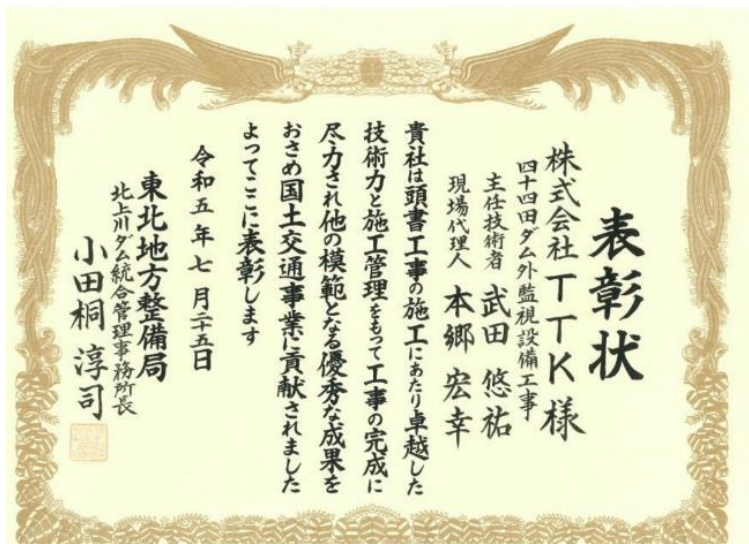 表彰状
株式会社TTK様
四十四田ダム外監視設備工事
主任技術者 武田悠祐
現場代理人 本郷宏幸
貴社は頭書工事の施工にあたり卓越した
技術力と施工管理をもって工事の完成に
尽力され他の模範となる優秀な成果を
おさめ国土交通事業に貢献されました
よってここに表彰します
令和五年七月二十五日
東北地方整備局
北上川ダム統合管理事務所長
小田桐淳司